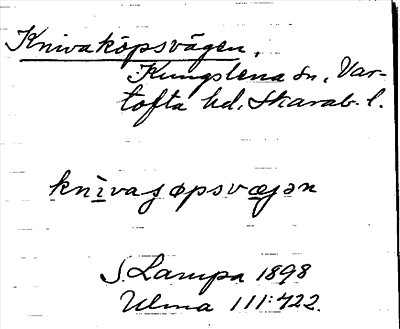 Knivaköpsvägen,
Kungslena sn, Var-
tofta hd, Skarab. l.
knìvaȷøpsvæȷən
S. Lampa 1898
Ulma 111:422.